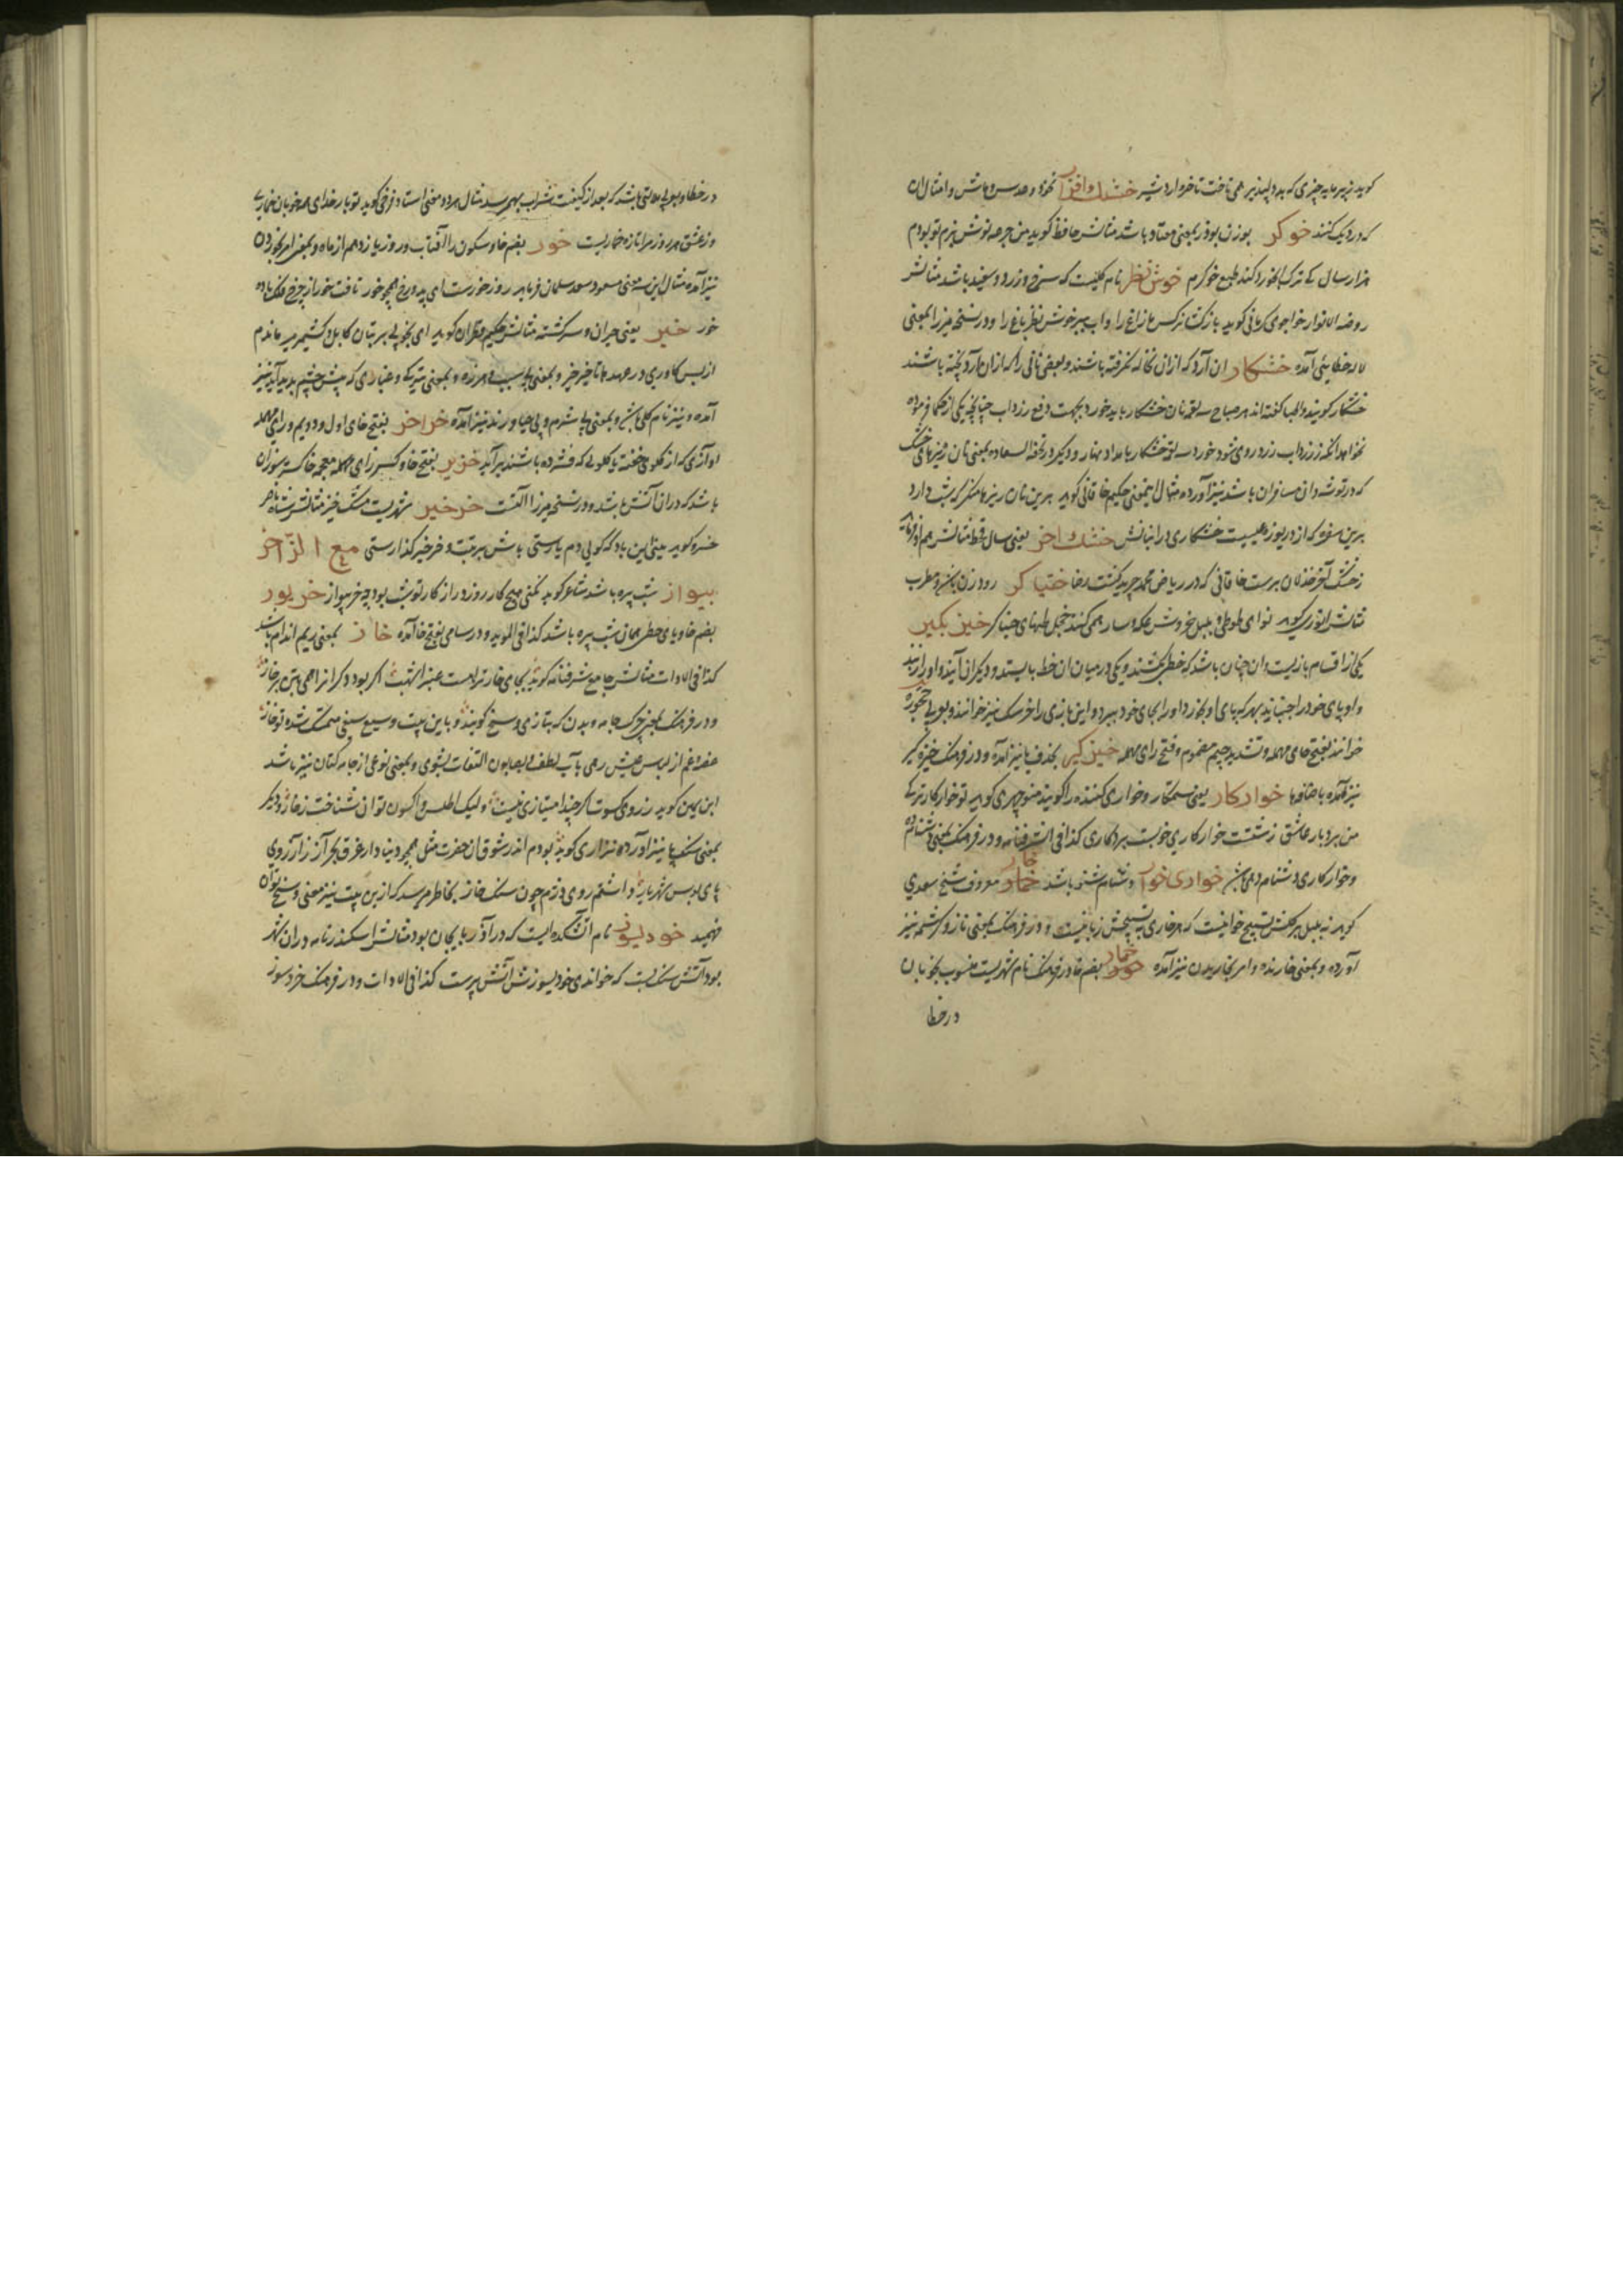 کوید زیر مایه چیزی که بد دلپذیر همی تاخت تا خره اردشیر خشک افزار نخود و عدس و ماش و امثال ان
که در دیک کنند خوکر بوزن بوذر بمعنی معتاد باشد مثالش حافظ کوید من جرعه نوش بزم تو بودم
هزار سال کی ترک ابخورد کند طبع خوکرم خوش نظر نام کلیست که سرخ و زرد و سفید باشد مثالش
روضه الانوار خواجوی کرمانی کوید باز کشا نرکس ما زاغ را واب ببر خوش نظر باغ را و در نسخه میرزا بمعنی
لاله خطایی آمده خشکار ان آرد که ازان نخاله نکرفته باشند و بعضی نانی را که ازان آرد پخته باشند
خشکار کویند و اطبا کفته اند هر صباح سه لقمه نان خشکار باید خورد بجهت دفع زرداب چنانچه یکی از حکما فرموده
نخواهد انکه ز زرداب زرد روی شود خورد سه لقمه خشکار بامداد نهار و دیکر در تحفه السعاده بمعنی نان ریزهای خشک
که در توشه دان مسافران باشد نیز آورده مثال اینمعنی حکیم خاقانی کوید برین نان ریزها منکر که شب دارد
برین سفره که از دریوزه عیسیست خشکاری در انبانش خشک اخر یعنی سال قحط مثالش هم او فرماید
ز خشک آخر خذلان برست خاقانی که در ریاض محمد چرید کشت رضا ختیا کر رود زن باشد و مطرب
مثالش انوری کوید نوای طوطی و بلبل خروش عکه و سار همی کند خجل طنهای خنیاکر خیز بکیر
یکی از اقسام بازیست و ان چنان باشد که خطی بکشند و یکی در میان ان خط بایستد و دیکران آیند و او را زنند
و او پای خود را جنباند بهر که پای او بخورد او را بجای خود ببرد و این بازی را خرسک نیز خوانند و بعربی حجوره
خوانند بفتح حای مهمله و تشدید جیم مضموم و فتح رای مهمله خیز کیر بحذف با نیز آمده و در فرهنک خیزه کیر
نیز آمده باضافه ها خوارکار یعنی ستمکار و خواری کننده را کویند منوچهری کوید تو خوارکار ترکی
من بردبار عاشق زشتت خوار کاری خوبست بردباری کذا فی الشرفنامه و در فرهنک بمعنی دشنام ده
و خوارکاری دشنام دهی خواری خوار دشنام شنو باشد خار معروف شیخ سعدی
کوید نه بلبل بر کلش تسبیح خوانیست که هر خاری به تسبیحش زبانیست و در فرهنک بمعنی ناز و کرشمه نیز
آورده و بمعنی خارنده و امر بخاریدن نیز آمده خمار بضم خا در فرهنک نام شهریست منسوب بخوبان
در خطا
در خطا و بعربی حالتی باشد که بعد از کیفیت شراب بهم رسد مثال هر دو معنی استاد فرخی کوید تو بار خدای همه خوبان خماری
وز عشق تو هر روز مرا تازه خماریست خور بضم خا و سکون را آفتاب و روز یازدهم از ماه و بمعنی امر بخوردن
نیز آمده مثال این سه معنی مسعود سعد سلمان فرماید روز خورست ای به دو رخ همچو خور تافت خور از چرخ فلک باده
خور خیر یعنی حیران و سرکشته مثالش حکیم قطران کوید ای بخوبی بر بتان کابل و کشمیر میر ماندم
از بس کاوری در عهد ها تاخیر خیر و بمعنی بی سبب و هرزه و بمعنی تیره کی و غباری که پیش چشم پدید آید نیز
آمده و نیز نام کلی باشد و بمعنی بی شرم و بی حیا و رند نیز آمده خراخر بفتح خای اول و دویم و رای مهمله
اوازی که از کلوی خفته یا کلوئی که فشرده باشند بر آید خزیر بفتح خا و کسر زای معجمه خاکستر سوزان
باشد که دران آتش باشد و در نسخه میرزا آلتست خرخیر شهریست مشک خیز مثالش شاه ناصر
خسرو کوید میتاین باد که کوئی دم یارستی یاش بر تبت و خرخیر کذارستی مع الزا خر
بیواز شب پره باشد شاعر کوید نمنی هیچ کار روز دراز کار تو شب بود چو خر بیواز خریوز
بضم خا و یای حطی همان شب پره باشد کذا فی الموید و در سامی بفتح خا آمده خاز بمعنی ریم اندام باشد
کذا فی الادات مثالش جامع شرفنامه کوید بجای خاز تراهست عنبر اشهب اکر بود دکرانرا همی بتن بر خاز
و در فرهنک بمعنی چرک جامه و بدن که بتازی وسخ کویند و باین بیت وسیع سیفی متمسک شده تو خاز
حقه و غم از لباس عیش رهی بآب لطف و بصابون التفات بشوی و بمعنی نوعی از جامه کتان نیز باشد
ابن یمین کوید ز روی کسوت اکر چند امتیازی نیست ولیک اطلس و اکسون توان شناخت ز خاز و دیکر
بمعنی سنک پا نیز اورده نزاری کوید بودم اندر شوق ان حضرت مثل همچو دنیادار غرق بحر آز ز ارزوی
پای بوس شهریار داشتم روی دژم چون سنک خاز بخاطر میرسد که ازین بیت نیز معنی وسخ توان
فهمید خودسوز نام آتشکده ایست که در آذربایجان بود مثالش اسکندرنامه دران شهر
بود آتش سنک بست که خواندی خودیسوزش آتش پرست کذا فی الادات و در فرهنک خردسوز